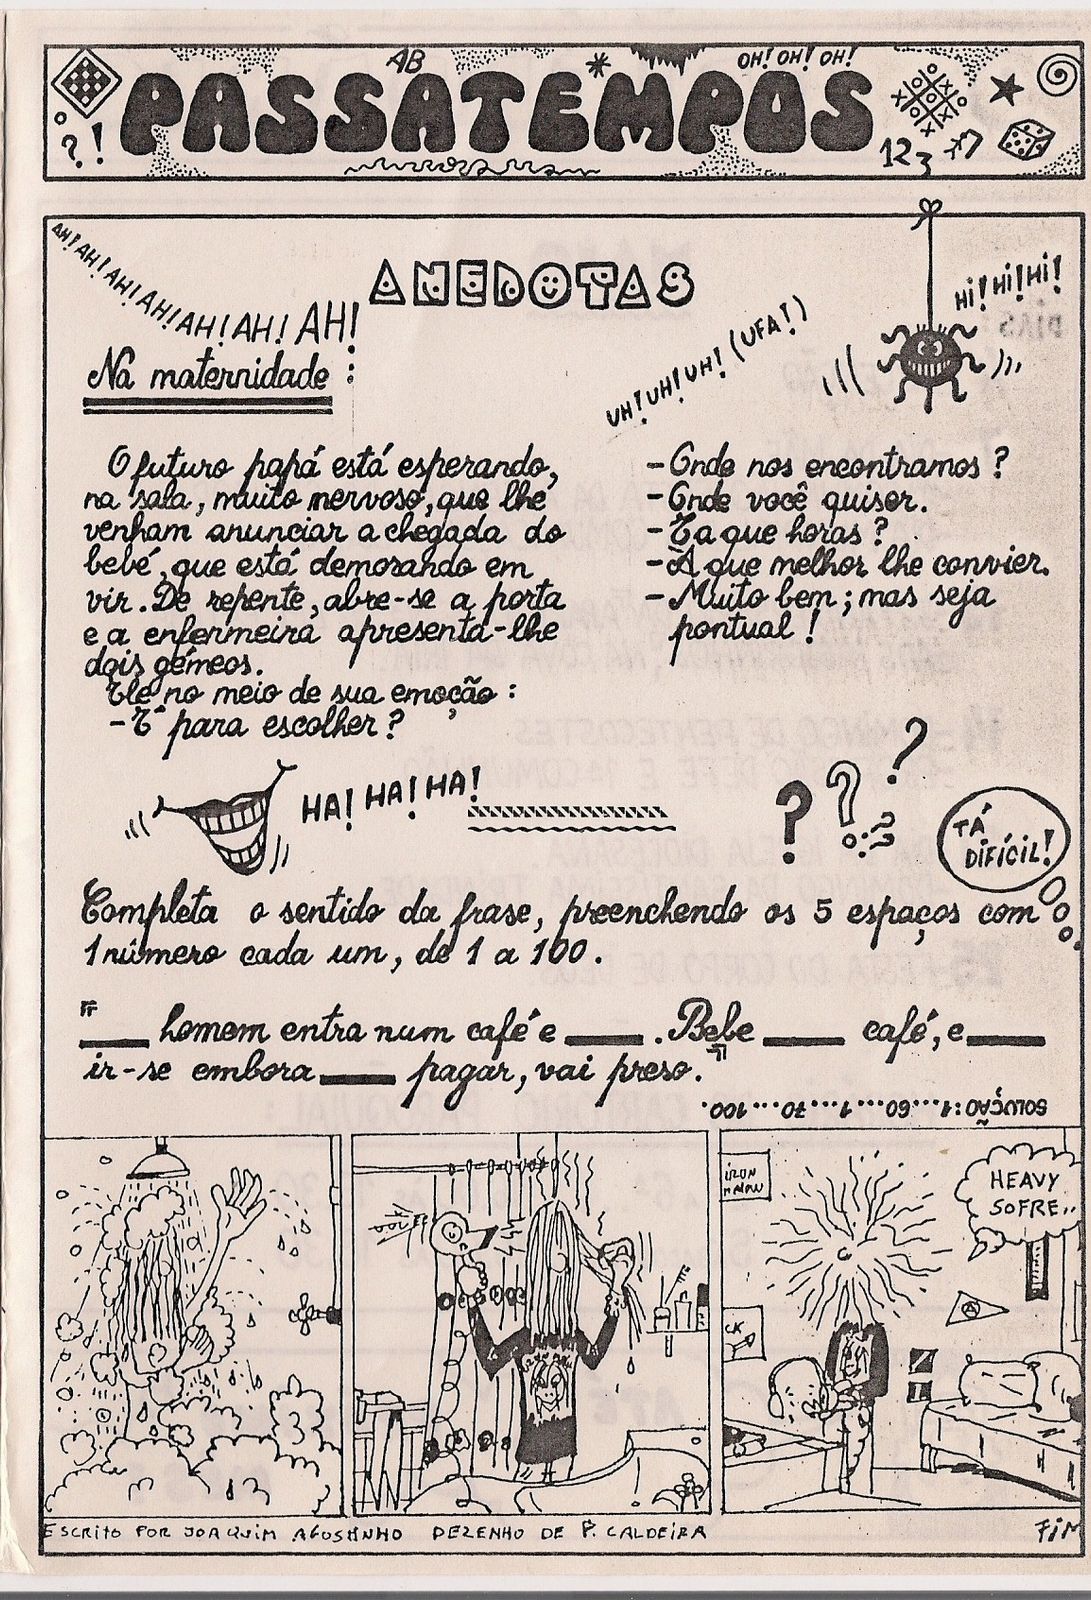 AB
OH! OH! OH!
PASSATEMPOS
?!
123
AH! AH! AH! AH! AH! AH! AH!
ANEDOTAS
HI! HI! HI!
UH! UH! UH! (UFA!)
Na maternidade :
O futuro papá está esperando,
na sala, muito nervoso, que lhe
venham anunciar a chegada do
bebé, que está demorando em
vir. De repente, abre-se a porta
e a enfermeira apresenta-lhe
dois gémeos.
Ele no meio de sua emoção :
- É para escolher ?
- Onde nos encontramos ?
- Onde você quiser.
- E a que horas ?
- À que melhor lhe convier.
- Muito bem ; mas seja
pontual !
HA! HA! HA!
? ? ?
TÁ
DIFÍCIL!
Completa o sentido da frase, preenchendo os 5 espaços com
1 número cada um, de 1 a 100.
"___ homem entra num café e ___. Bebe ___ café, e ___
ir-se embora ___ pagar, vai preso."
SOLUÇÃO: 1....60....1....70....100.
IRON
HEAVY
SOFRE..
ESCRITO POR JOAQUIM AGOSTINHO DEZENHO DE P. CALDEIRA
FIM